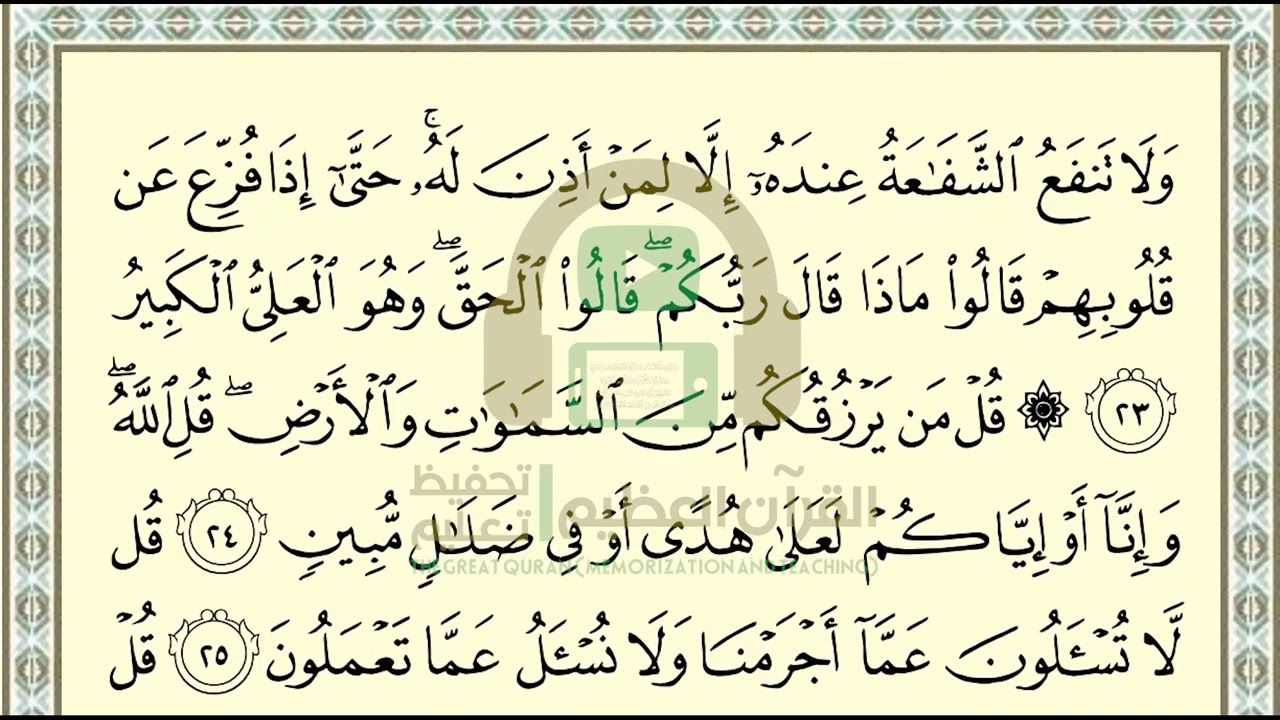 وَلَا تَنفَعُ ٱلشَّفَٰعَةُ عِندَهُۥٓ إِلَّا لِمَنْ أَذِنَ لَهُۥۚ حَتَّىٰٓ إِذَا فُزِّعَ عَن
قُلُوبِهِمْ قَالُوا۟ مَاذَا قَالَ رَبُّكُمْۖ قَالُوا۟ ٱلْحَقَّۖ وَهُوَ ٱلْعَلِىُّ ٱلْكَبِيرُ
٢٣ ۞ قُلْ مَن يَرْزُقُكُم مِّنَ ٱلسَّمَٰوَٰتِ وَٱلْأَرْضِۖ قُلِ ٱللَّهُۖ
تحفيظ
تعليم | القرآن العظيم
وَإِنَّآ أَوْ إِيَّاكُمْ لَعَلَىٰ هُدًى أَوْ فِى ضَلَٰلٍ مُّبِينٍ ٢٤ قُل
THE GREAT QURAN (MEMORIZATION AND TEACHING)
لَّا تُسْـَٔلُونَ عَمَّآ أَجْرَمْنَا وَلَا نُسْـَٔلُ عَمَّا تَعْمَلُونَ ٢٥ قُلْ